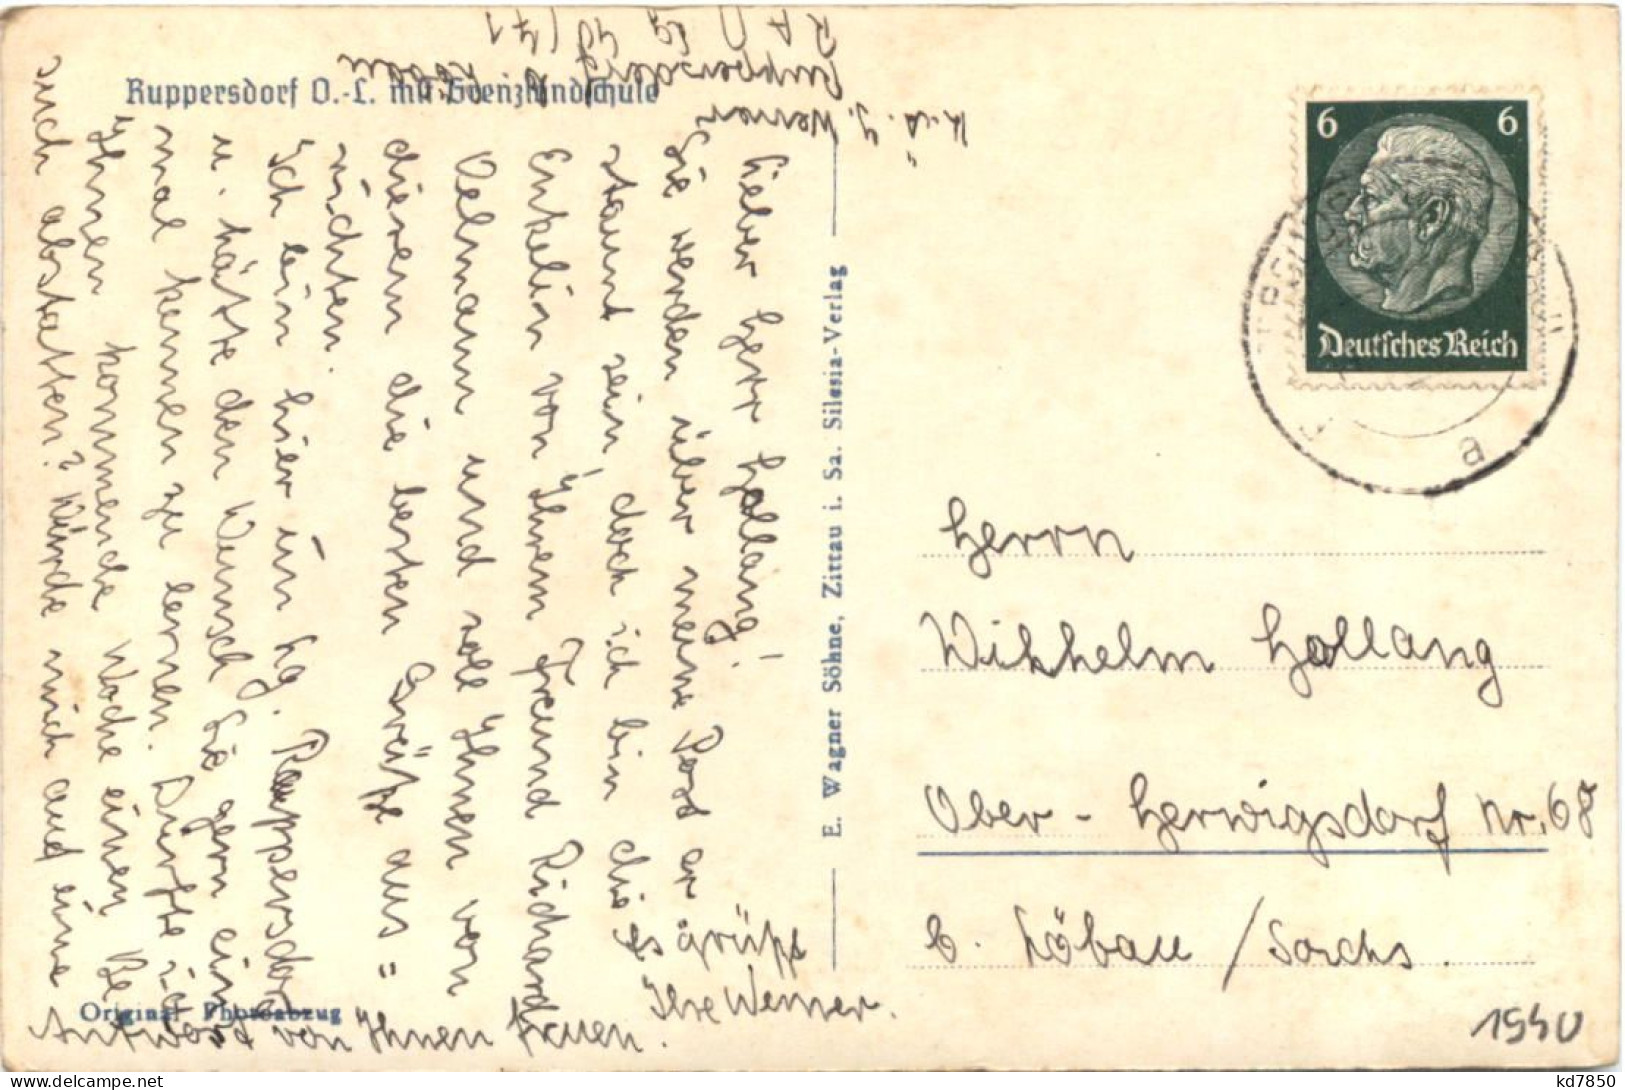 Ruppersdorf O.-L. mit Grenzlandschule
Lieber Herr Hollang!
Sie werden über meine Post er
staunt sein, doch ich bin die
Enkelin von Ihrem Freund Richard
Oelmann und soll Ihnen von
diesem die besten Grüße aus=
richten.
Ich bin hier im Lg. Ruppersdorf
u. hätte den Wunsch Sie gern ein
mal kennen zu lernen. Dürfte ich
Ihnen kommende Woche einen Be
such abstatten? Würde mich auf eine
Antwort von Ihnen freuen.
Es grüßt
Ihre Werner.
J. Werner
Ruppersdorf
R A D Lg 40/71
E. Wagner Söhne, Zittau i. Sa. Silesia-Verlag
Original Photoabzug
6 6
Deutsches Reich
a
Herrn
Wilhelm Hollang
Ober-Herwigsdorf Nr. 68
b. Löbau / Sachs.
1540
kd7850